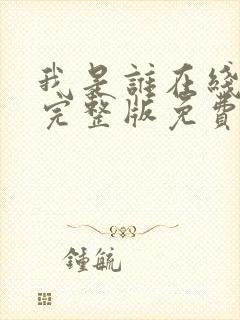 我是誰在綫
完整版免費
鍾毓